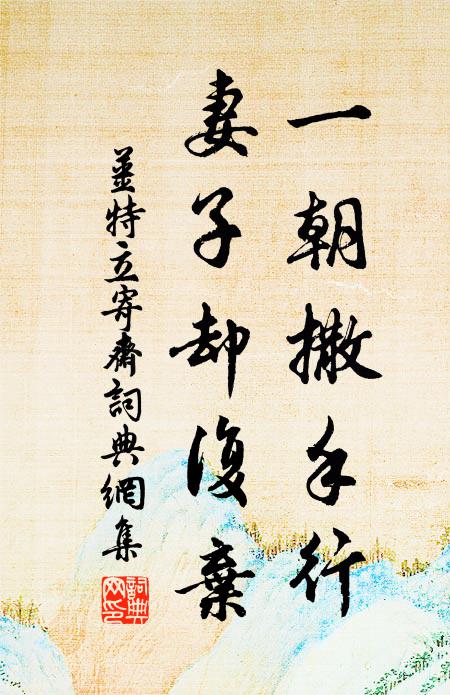 一朝撒手行
妻子却復棄
薑特立寄齋詞典網集
詞典
网印